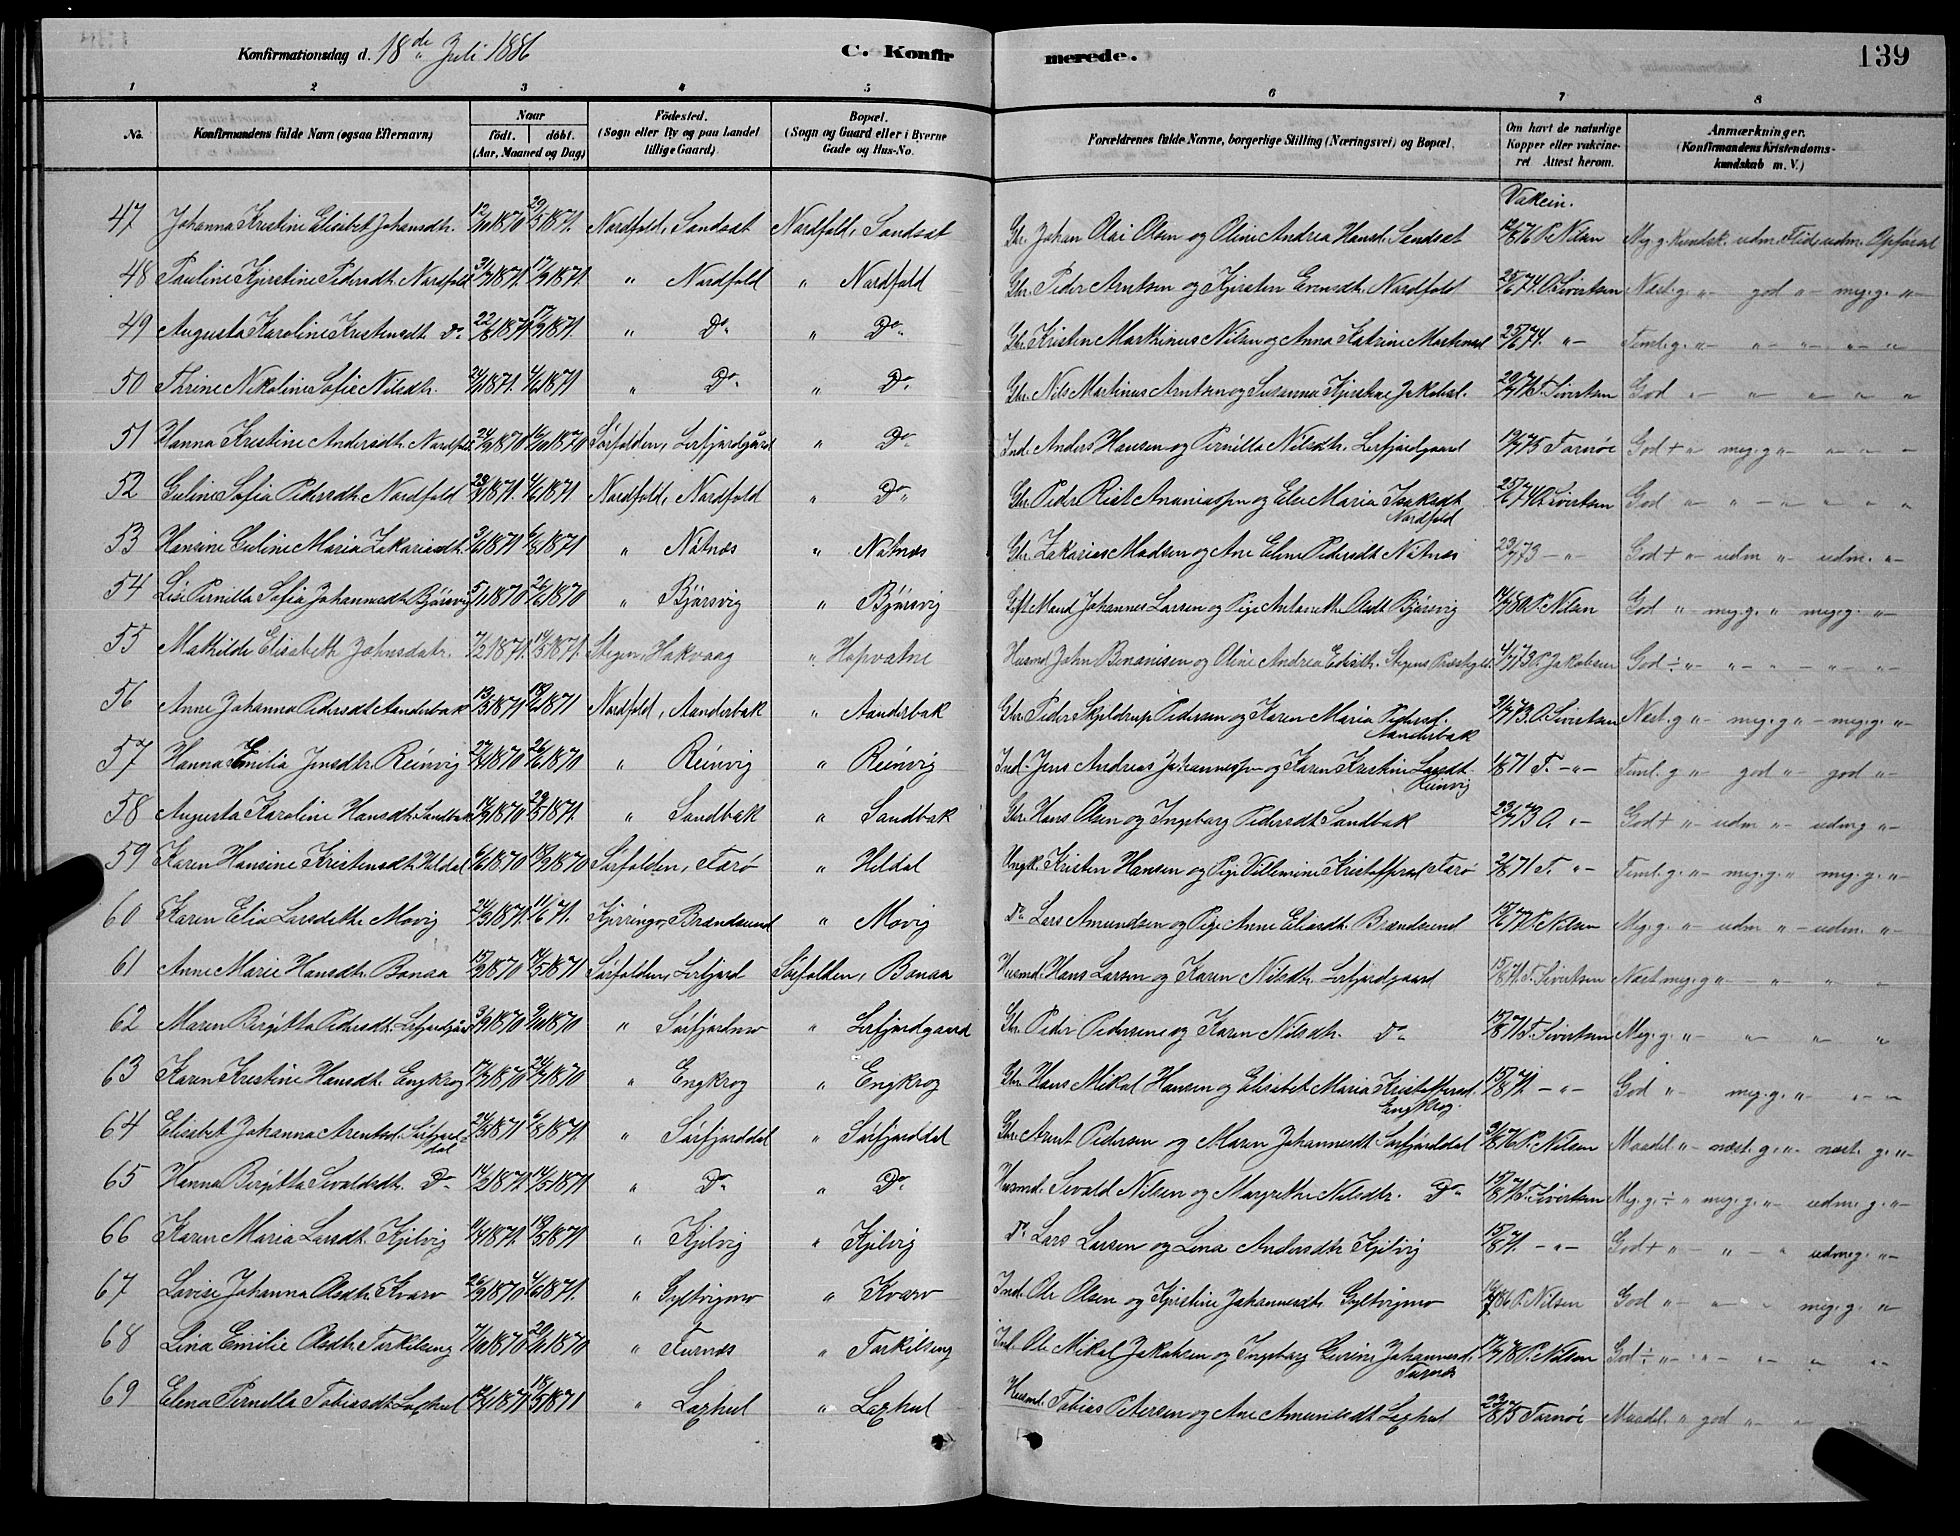 Konfirmationsdag d. 18de Juli 1886 C. Konfirmerede. 139
1 2 3 4 5 6 7 8
No. Konfirmandens fulde Navn (ogsaa Efternavn) Naar födt. döbt. (Aar, Maaned og Dag) Födested. (Sogn eller By og paa Landet tillige Gaard) Bopæl. (Sogn og Gaard eller i Byerne Gade og Hus-No. Forældrenes fulde Navne, borgerlige Stilling (Næringsvei) og Bopæl. Om havt de naturlige Kopper eller vakcineret Attest herom. Anmærkninger. (Konfirmandens Kristendomskundskab m. V.)
Vakcin.
47 Johanna Kristine Elisabet Johansdtr. 1870 1871. Nordfold, Sandsæt Nordfold, Sandsæt Gbr. Johan Olai Olsen og Oline Andrea Hansd. Sandsæt 76 P. Nilsen Meg. g. Kundsk. udm. Flid, udm. Opførsel
48 Pauline Kjerstine Pedersdtr. Nordfold 1871. 17/9 1871. " Nordfold " Nordfold Gbr. Peder Arntsen og Kjersten Evensdtr. Nordfold 25/6 74. O. Sivertsen Næst. g. " god " meg. g. "
49 Augusta Karoline Kristensdtr. Do 22/8 1871. 17/9 1871. " Do " Do Gbr. Kristen Markinus Nilsen og Anna Katrine Martinsd. 25/6 74. " Teml. g. " " " " "
50 Thrine Nikoline Sofie Nilsdtr. 1871. 1871 " Do " Do Gbr. Nils Martinus Arntsen og Susanna Kjerstine Jakobsd. 71 T. Sivertsen God " " " " "
51 Hanna Kristine Andersdtr. Nordfold 1870 1870 Sörfolden, Lerfjordgård " Do Ind. Anders Hansen og Pernille Nilsdtr. Lerfjordgaard 75 Tornöe God + " meg. g. " " "
52 Guline Sofia Pedersdtr. Nordfold 1871. 1871 Nordfold, Nordfold " Do Gbr. Peder Rist Ananiassen og Else Maria Isaksdtr. Nordfold 25/6 74 O. Sivertsen God " " " " "
53 Hansine Guline Maria Zakariasdtr. 1871 1871 " Nötnes " Nötnes Gbr. Zakarias Madsen og Ane Elen Pedersdtr. Nötnes 73 " God + " udm " udm. "
54 Lise Pernilla Sofia Johannesdtr. Bjørsvig 5/1 1870 1870 " Bjørsvig " Bjørsvig Gift Mand Johannes Larsen og Pige Antoneth Olsdt. Bjørsvig 80 P. Nilsen God " meg. g. " meg. g. "
55 Mathilde Elisabeth Johnsdatr. 7/2 1871. 1871. Stegen, Hakvaag " Hopvatne Husmd. John Benonisen og Oline Andrea Edisdtr. Stegens Præstegd. 73 P. Jakobsen God ÷ " " " " "
56 Anne Johanna Pedersdt. Aanderbak 1871 1871 Nordfold, Aanderbak " Aanderbak Gbr. Peder Skjeldrup Pedersen og Karen Maria Pedersd. Aanderbak 73. O. Sivertsen Næst. g. " meg. g. " meg. g. "
57 Hanna Emilia Jensdtr. Reinvig 1870 1870 " Reinvig " Reinvig Ind. Jens Andreas Johannessen og Karen Kristine Larsdt. Reinvig 71 T. " Teml. g. " god " god "
58 Augusta Karoline Hansdt. Sandbak 1870 1871. " Sandbak " Sandbak Gbr. Hans Olsen og Ingeborg Pedersdt. Sandbak 73 O. " God + " udm " udmg "
59 Karen Hansine Kristensdt. Heldal 1870 1870 Sörfolden, Farö " Heldal Ungk. Kristen Hansen og Pige Villemine Kristoffersd. Farö 71 T. " Teml. g. " meg. g. " meg. g. "
60 Karen Elia Larsdtr. Movig 1871. 71. Kjerringö, Brændsund " Movig Do Lars Amundsen og Pige Anne Eliasdt. Brændsund P. Nilsen Meg. g. " udm " udm. "
61 Anne Marie Hansdt. Bonaa 1870 1871 Sörfolden, Lerfjord Sörfolden, Bonaa Husmd. Hans Larsen og Karen Nilsdtr. Lerfjordgaard 15/8 71. T. Sivertsen Næst meg. g. " " " "
62 Maren Birgitta Pedersdt. Lerfjordgård 1870 1870 " Sörfjordmo " Lerfjordgaard Gbr. Peder Pedersene og Karen Nilsdtr. Do 15/8 71 T. Sivertsen Meg. g. " " " "
63 Karen Kristine Hansdt. Engkrog 1870 1870 " Engkrog " Engkrog Gbr. Hans Mikal Hansen og Elisabet Maria Kristoffersd. Engkrog. 15/8 71. " God " meg. g. " " "
64 Elisabet Johanna Arentsd. Sörfjorddal 1871 6/8 1871. " Sörfjorddal " Sörfjorddal Gbr. Arnt Pedersen og Maren Johannesdt. Sörfjorddal 76 P. Nilsen Maadel. " næst. g. " næst. g. "
65 Hanna Birgitta Sivaldsdt. Do 1871. 1871 " Do " Do Husmd. Sivald Nilsen og Margrethe Nilsdtr. Do 71 T. Sivertsen Meg. g. ÷ " meg. g. " udm. g. "
66 Karen Maria Larsdt. Kjelvig 1871. 1871 " Kjelvig " Kjelvig Do Lars Larsen og Lina Andersdtr. Kjelvig 15/8 71. " God + " " " udmeg. "
67 Lovise Johanna Olsdt. Kvarv 1870 1871. " Gyltvigmo " Kvarv Ind. Ole Olsen og Kjerstine Johannesdt. Gyltvigmo 86 P. Nilsen God " " " meg. g. "
68 Lina Emilie Olsdt. Torkilseng 1870 1870 " Furnes " Torkilseng Ind. Ole Mikal Jakobsen og Ingeborg Gurine Johannesd. Furnes 78 P. Nilsen God ÷ " " " " "
69 Elena Pernella Tobiasdt. Laxhul 1871 1871 " Laxhul " Laxhul Husmd. Tobias Petersen og Ane Amundsdt. Laxhul 75 Tornöe Maadel. " god " " "